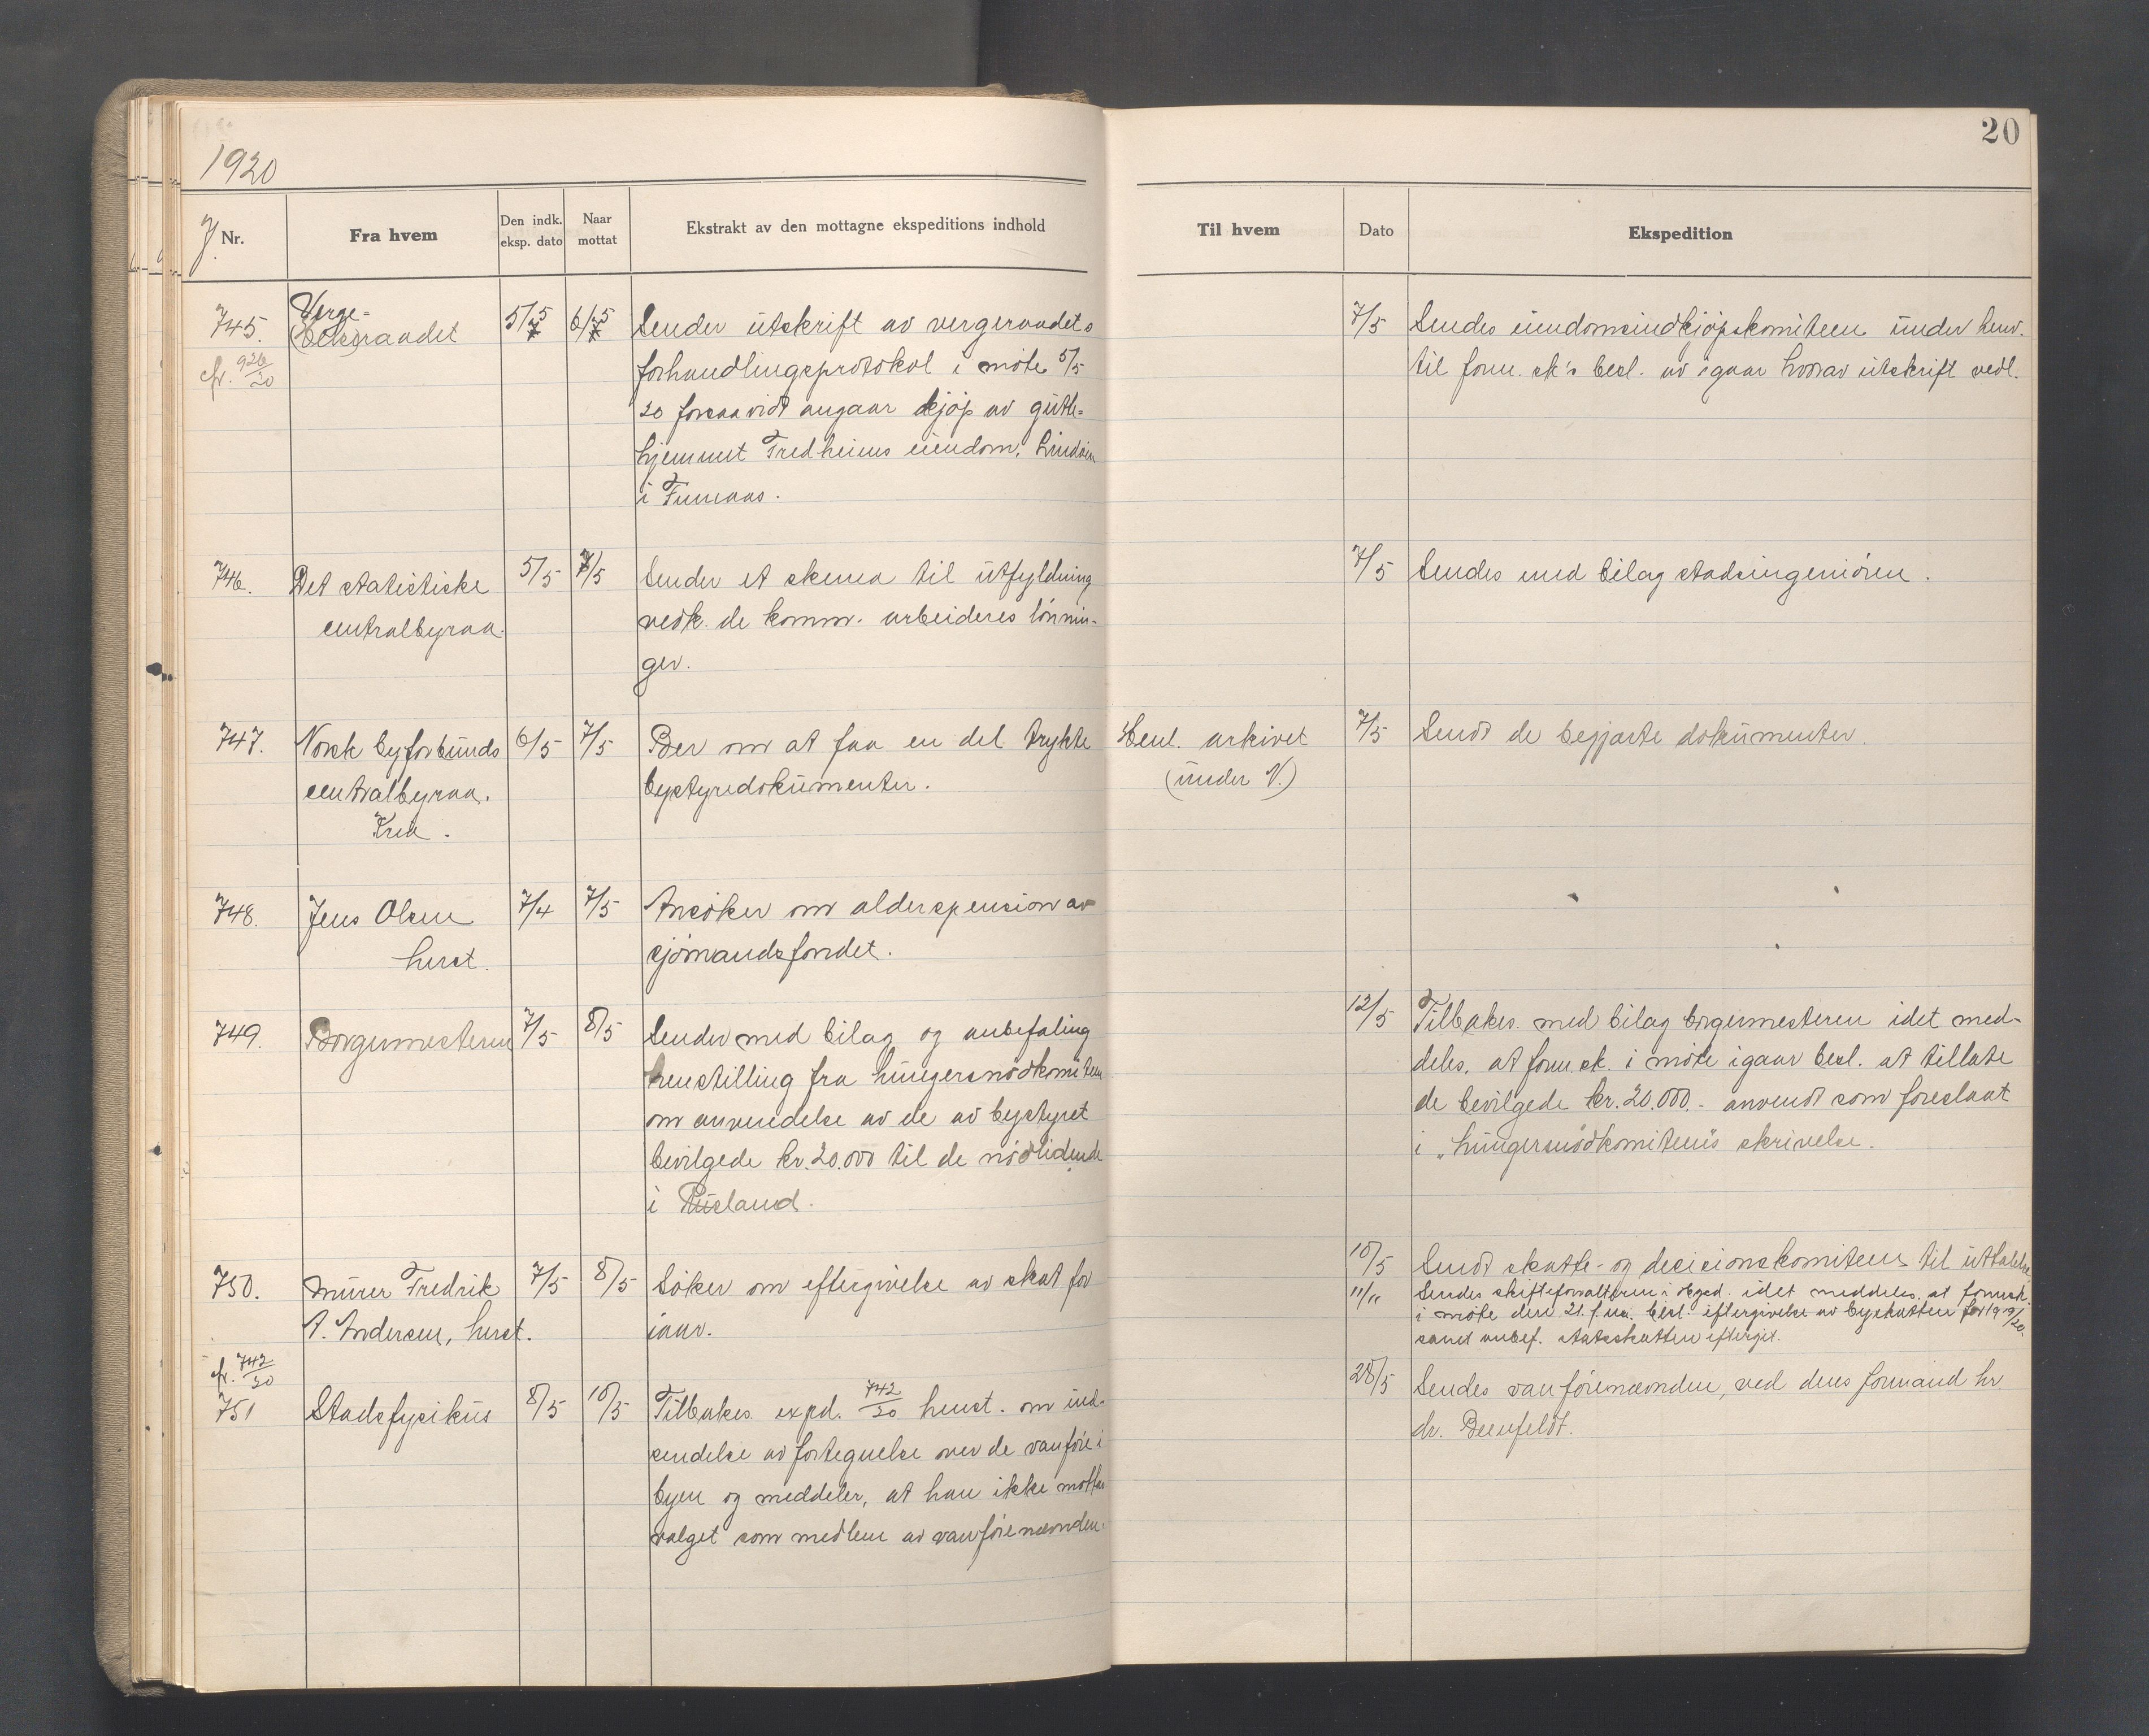 1920
20
J. Nr.
Fra hvem
Den indk. eksp. dato
Naar mottat
Ekstrakt av den mottagne ekspeditions indhold
Til hvem
Dato
Ekspedition
745. Verge-
raadet 5/5 6/5 Sender utskrift av vergeraadets
cfr. 926/20
forhandlingsprotokol i møte 5/5
20 forsaavidt angaar kjøp av gutte-
hjemmet Fredheims eiendom,
i Fumaas.
7/5 Sendes eiendomsindkjøpskomiteen under henv.
til form.sk's besl. av igaar hvorav utskrift vedl.
746. Det statistiske 5/5 7/5 Sender et skema til utfyldning
centralbyraa. vedk. de komm. arbeideres lønnin-
ger.
7/5 Sendes med bilag stadsingeniøren.
747. Norsk byforbunds 6/5 7/5 Ber om at faa en del trykte
centralbyraa. bystyredokumenter.
Kria.
Henl. arkivet 7/5 Sendt de begjærte dokumenter.
(under N.)
748. Jens Olsen 7/4 7/5 Ansøker om alderspension av
herst. sjømandsfondet.
749. Borgermesteren 7/5 8/5 Sender med bilag og anbefaling
henstilling fra hungersnødkomiteen
om anvendelse av de av bystyret
bevilgede kr. 20.000 til de nødlidende
i Rusland.
12/5 Tilbakes. med bilag borgermesteren idet med-
deles, at form.sk. i møte igaar besl. at tillate
de bevilgede kr. 20.000.- anvendt som foreslaat
i "hungersnødkomiteens skrivelse.
750. Murer Fredrik 7/5 8/5 Søker om eftergivelse av skat for
A. Andersen, herst. iaar.
10/5 Sendt skatte- og decisionskomiteen til uttalelse
11/11 Sendes skifteforvalteren i Hgsd. idet meddeles, at formsk.
i møte den 21. f.m. besl. eftergivelse av byskatten for 1919/20.
samt anbef. statsskatten eftergit.
cfr. 742/20
751 Stadsfysikus 8/5 10/5 Tilbakes. expd. 742/20 henst. om ind-
sendelse av fortegnelse over de vanføre i
byen og meddeler, at han ikke mottar
valget som medlem av vanførenævnden.
28/5 Sendes vanførenævnden, ved dens formand hr
dr. Beenfeldt.